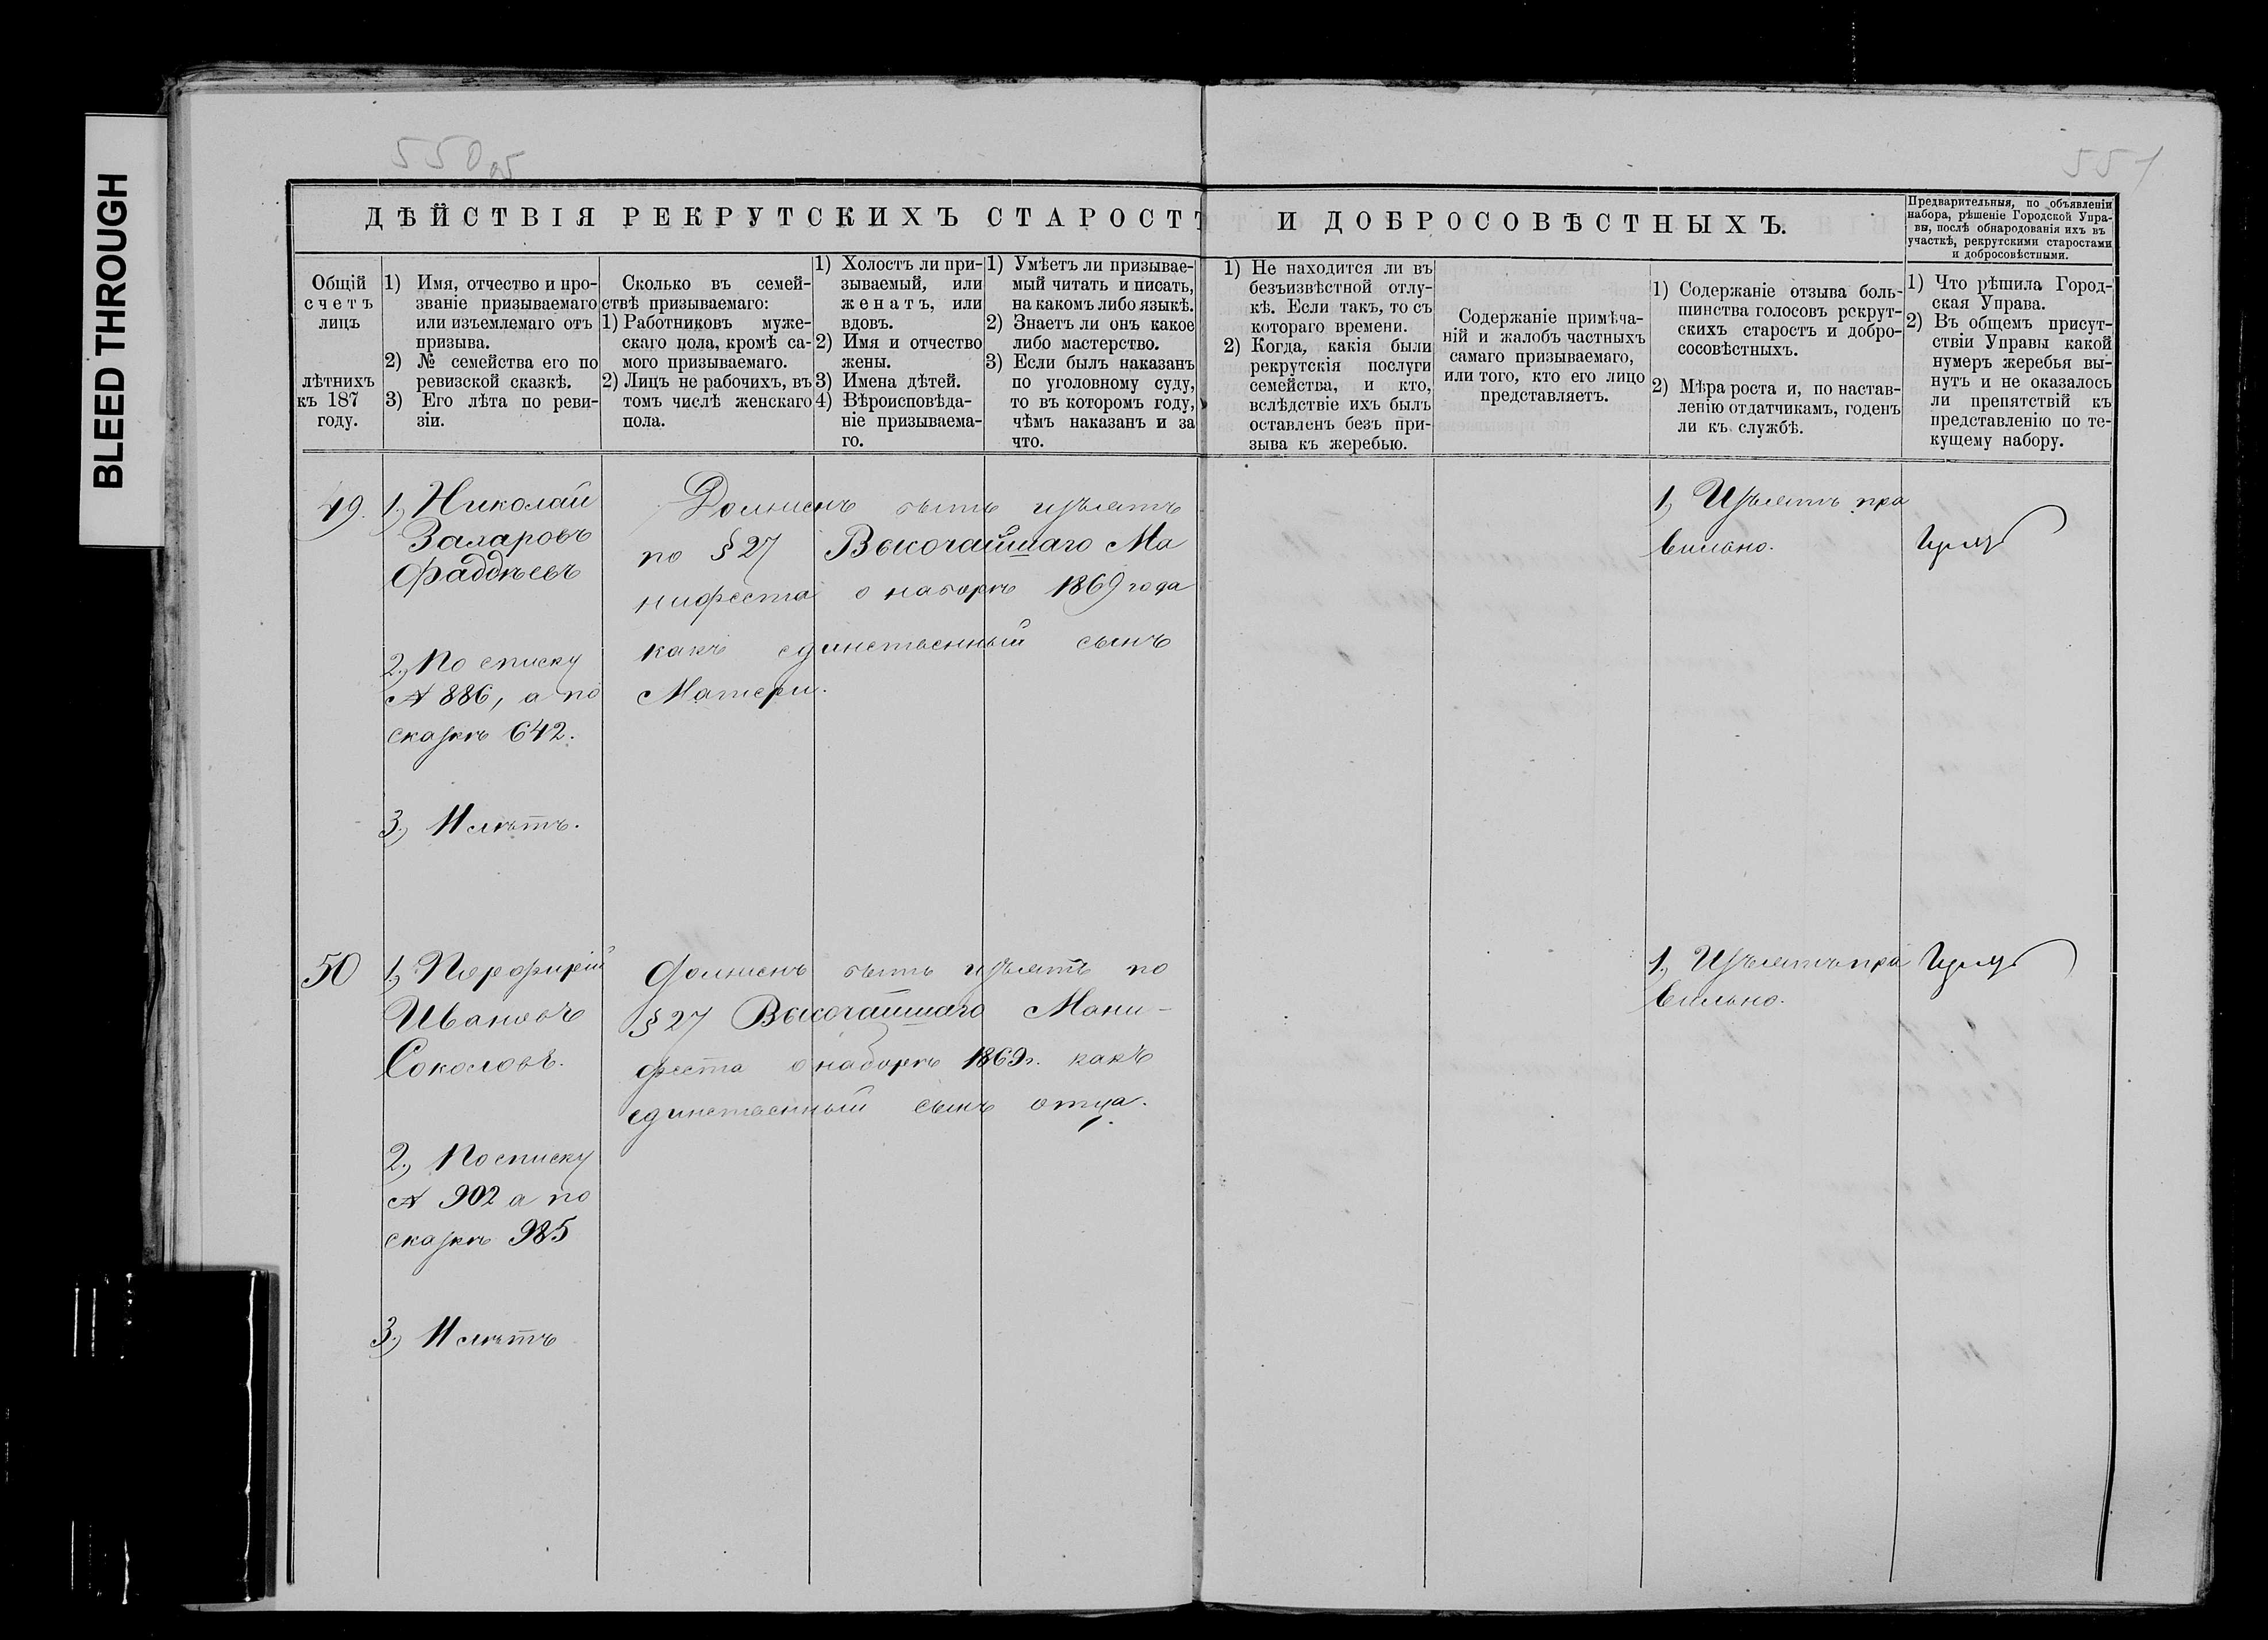 BLEED THROUGH
550 об
551
ДѢЙСТВІЯ РЕКРУТСКИХЪ СТАРОСТЪ И ДОБРОСОВѢСТНЫХЪ.
Предварительныя, по объявленіи
набора, рѣшеніе Городской Упра-
вы, послѣ обнародованія ихъ въ
участкѣ, рекрутскими старостами
и добросовѣстными.
Общій
счетъ
лицъ
лѣтнихъ
къ 187
году.
1) Имя, отчество и про-
званіе призываемаго
или изъемлемаго отъ
призыва.
2) № семейства его по
ревизской сказкѣ.
3) Его лѣта по реви-
зіи.
Сколько въ семей-
ствѣ призываемаго:
1) Работниковъ муже-
скаго пола, кромѣ са-
мого призываемаго.
2) Лицъ не рабочихъ, въ
томъ числѣ женскаго
пола.
1) Холостъ ли при-
зываемый, или
женатъ, или
вдовъ.
2) Имя и отчество
жены.
3) Имена дѣтей.
4) Вѣроисповѣда-
ніе призываема-
го.
1) Умѣетъ ли призывае-
мый читать и писать,
на какомъ либо языкѣ.
2) Знаетъ ли онъ какое
либо мастерство.
3) Если былъ наказанъ
по уголовному суду,
то въ которомъ году,
чѣмъ наказанъ и за
что.
1) Не находится ли въ
безъизвѣстной отлу-
кѣ. Если такъ, то съ
котораго времени.
2) Когда, какія были
рекрутскія послуги
семейства, и кто,
вслѣдствіе ихъ былъ
оставленъ безъ при-
зыва къ жеребью.
Содержаніе примѣча-
ній и жалобъ частныхъ
самаго призываемаго,
или того, кто его лицо
представляетъ.
1) Содержаніе отзыва боль-
шинства голосовъ рекрут-
скихъ старостъ и добро-
сосовѣстныхъ.
2) Мѣра роста и, по настав-
ленію отдатчикамъ, годенъ
ли къ службѣ.
1) Что рѣшила Город-
ская Управа.
2) Въ общемъ присут-
ствіи Управы какой
нумеръ жеребья вы-
нутъ и не оказалось
ли препятствій къ
представленію по те-
кущему набору.
49.
1, Николай
Захаровъ
Фаддѣевъ
2, По списку
№ 886, а по
сказкѣ 642.
3,
Долженъ быть изъятъ
по § 27 Высочайшаго Ма
нифеста о наборѣ 1869 года
какъ единственный сынъ
Матери.
1, Изъятъ пра
вильно.
50
1, Порфирій
Ивановъ
Соколовъ.
2, По списку
№ 902 а по
сказкѣ 985
3,
Долженъ быть изъятъ по
§ 27 Высочайшаго Мани-
феста о наборѣ 1869 г. какъ
единственный сынъ отца.
1, Изъятъ пра
вильно.